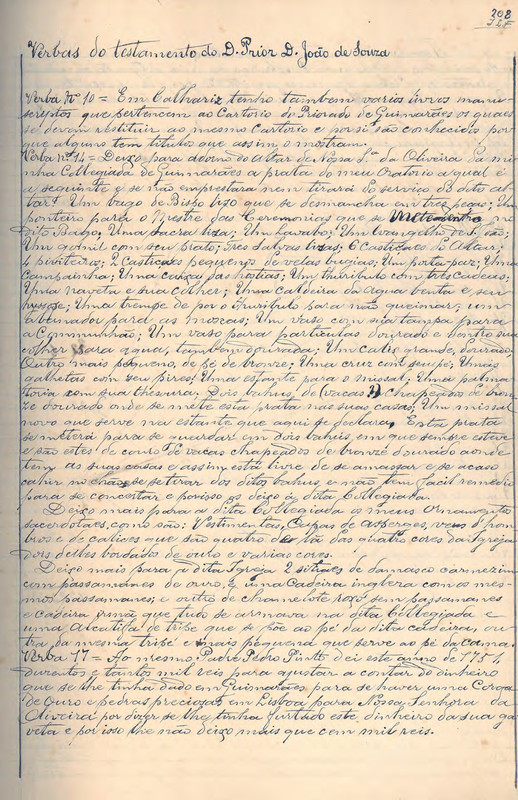 208
Verbas do testamento do D. Prior D. João de Souza
Verba Nº 10 = Em Calhariz tenho tambem varios livros manu-
scriptos que pertencem ao Cartorio do Priorado de Guimarães os quaes
se devem restituir ao mesmo Cartorio e por si são conhecidos por
que alguns tem titulos que assim o mostram.
Verba nº 14 = Deixo para adorno do Altar de Nossa Sª da Oliveira da mi-
nha Collegiada de Guimarães a prata do meu Oratorio a qual é
a seguinte e se não emprestara nem tirará do serviço do dito al-
tar: Um bago de Bispo lizo que se desmancha em tres peças; Um
ponteiro para o Mestre das Ceremonias que se mete dentro no
dito Bago; Uma sacra liza; Um Lavabo; Um Evangelho de S. João;
Um gomil com seu prato; Tres salvas lizas; 6 Casticaes do Altar;
4 piviteiros; 2 Casticaes pequenos de velas bugias; Um porta-paz; Uma
Campainha; Uma caixa das hostias; Um thuribulo com tres cadeas;
Uma naveta e sua colher; Uma caldeira da agua benta e seu
hyssope; Uma trempe de por o thuribulo para não queimar; um
abanador para as moscas; Um vaso com sua tampa para
a Communhão; Um vaso para particulas dourado e dentro sua
colher para agua, tambem dourada; Um calix grande, dourado;
Outro mais pequeno, de pé de bronze; Uma cruz com seu pé; Umas
galhetas com seu pires; Uma estante para o missal; Uma palma-
toria com sua thesoura; Dois bahus de vacas chapeados de bron-
ze dourado onde se mete esta prata nas suas casas; Um missal
novo que serve na estante que aqui se declara. Esta prata
se meterá para se guardar em dois bahus, em que sempre esteve
e são estes de couro de vacas chapeados de bronze dourado aonde
tem as suas casas e assim está livre de se amassar e se acaso
cahir no chão se se tirar dos ditos bahus e não tem facil remedio
para se concertar e por isso os deixo á dita Collegiada.
Deixo mais para a dita Collegiada os meus Ornamentos
sacerdotaes, como são: Vestimentas, Capas de Asperges, veus d'hom-
bros e de calices que são quatro de lá das quatro cores da Igreja
dois delles bordados de ouro e varias cores.
Deixo mais para a dita Igreja 2 sitiaes de damasco carmezim
com passamanes de ouro, e uma cadeira ingleza com os mes-
mos passamanes; e outro de chamelote roxo sem passamanes
e cadeira irmã que tudo se armava na dita Collegiada e
uma Alcatifa de tribe que se põe ao pé da dita cadeira, ou-
tra da mesma tribé e mais pequena que serve ao pé da cama.
Verba 17 = Ao mesmo Padre Pedro Pinto dei este anno de 1754
duzentos e tantos mil reis para ajustar a contar do dinheiro
que se lhe tinha dado em Guimarães para se haver uma Coroa
de Ouro e pedras preciosas em Lisboa para Nossa Senhora da
Oliveira por dizer se lhe tinha furtado este dinheiro da sua ga-
veta e por isso lhe não deixo mais que cem mil reis.